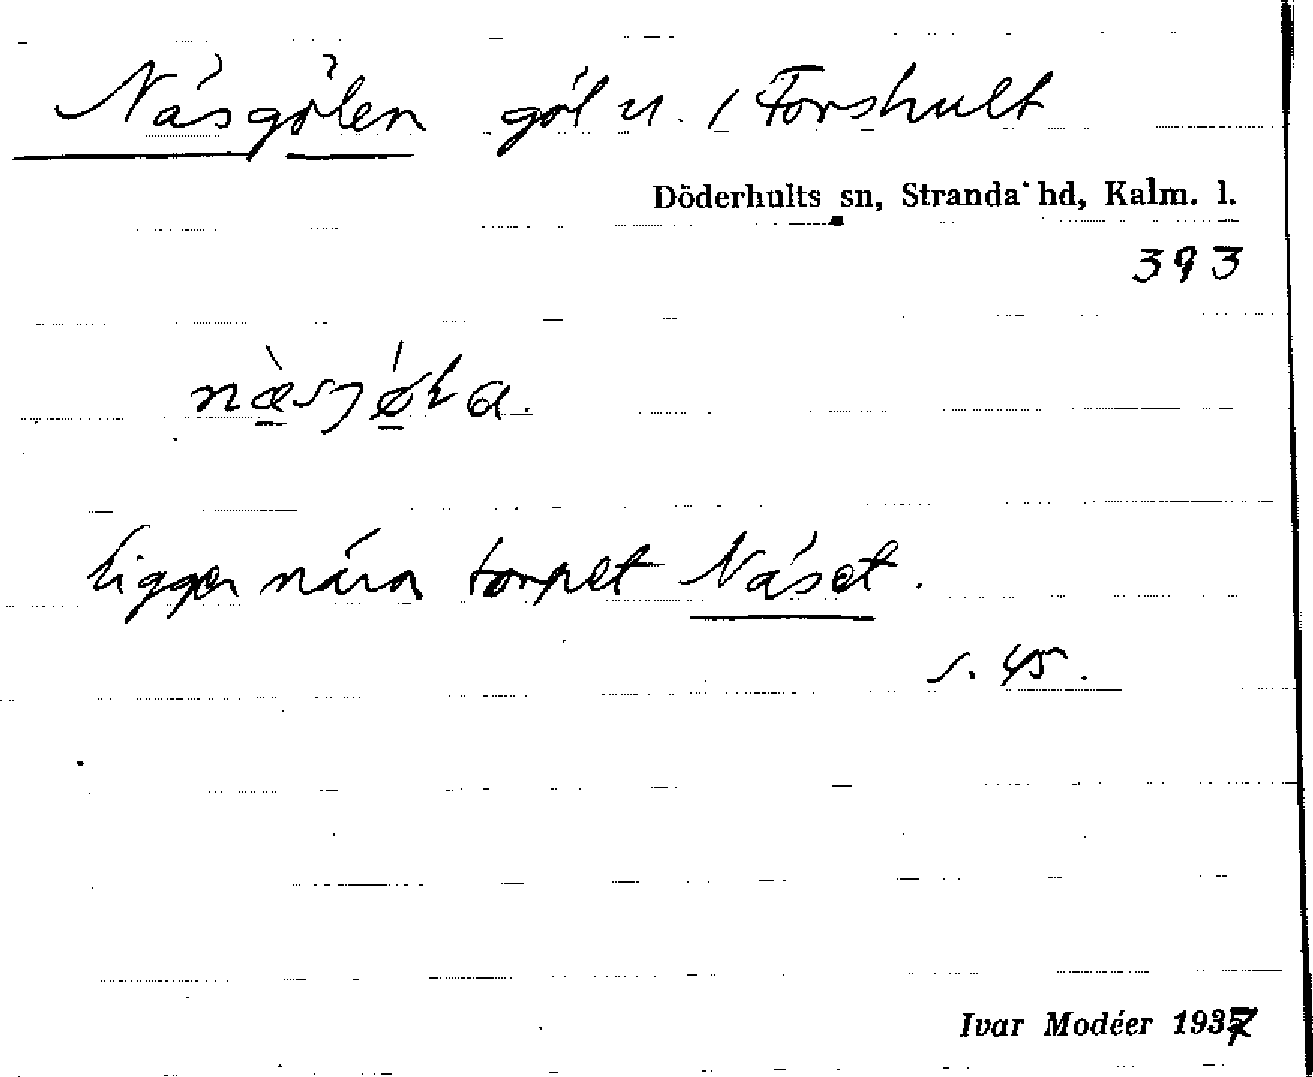 Näsgölen göl u. / Forshult
Döderhults sn, Stranda hd, Kalm. l.
393
næ̀sjǿɫa.
ligger nära torpet Näset.
s. 45.
Ivar Modéer 1937